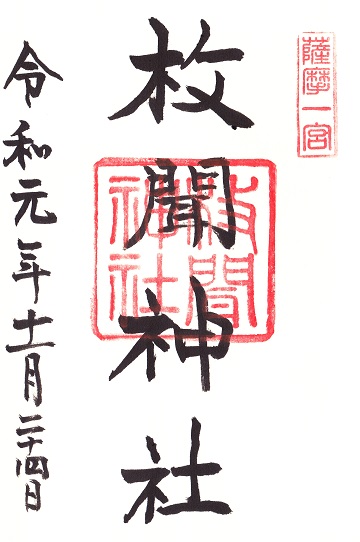 薩摩一宮
枚聞神社
枚聞
神社
令和元年十一月二十四日